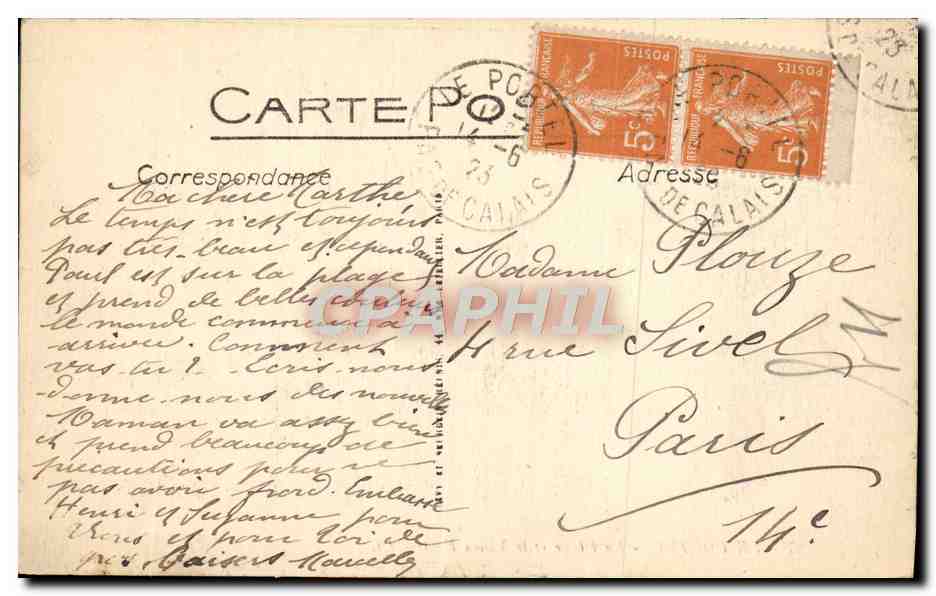 CARTE PO
Correspondance
Adresse
POSTES
REPUBLIQUE FRANÇAISE
5c
POSTES
REPUBLIQUE FRANÇAISE
5c
LE PORTEL
14
-6
23
DE CALAIS
PORTEL
-6
DE CALAIS
23
DE CALAIS
Ma chère Marthe,
Le temps n'est toujours
pas très beau et cependant
Paul est sur la plage
et prend de belles couleurs
le monde commence à
arriver. Comment
vas-tu ? Ecris-nous
donne-nous des nouvelles
Maman va assez bien
et prend beaucoup de
précautions pour ne
pas avoir froid. Embrasse
Henri et Suzanne pour
nous et pour toi de
gros Baisers Marcelle
Madame Plouze
4 rue Sivel
Paris
14e
CPAPHIL